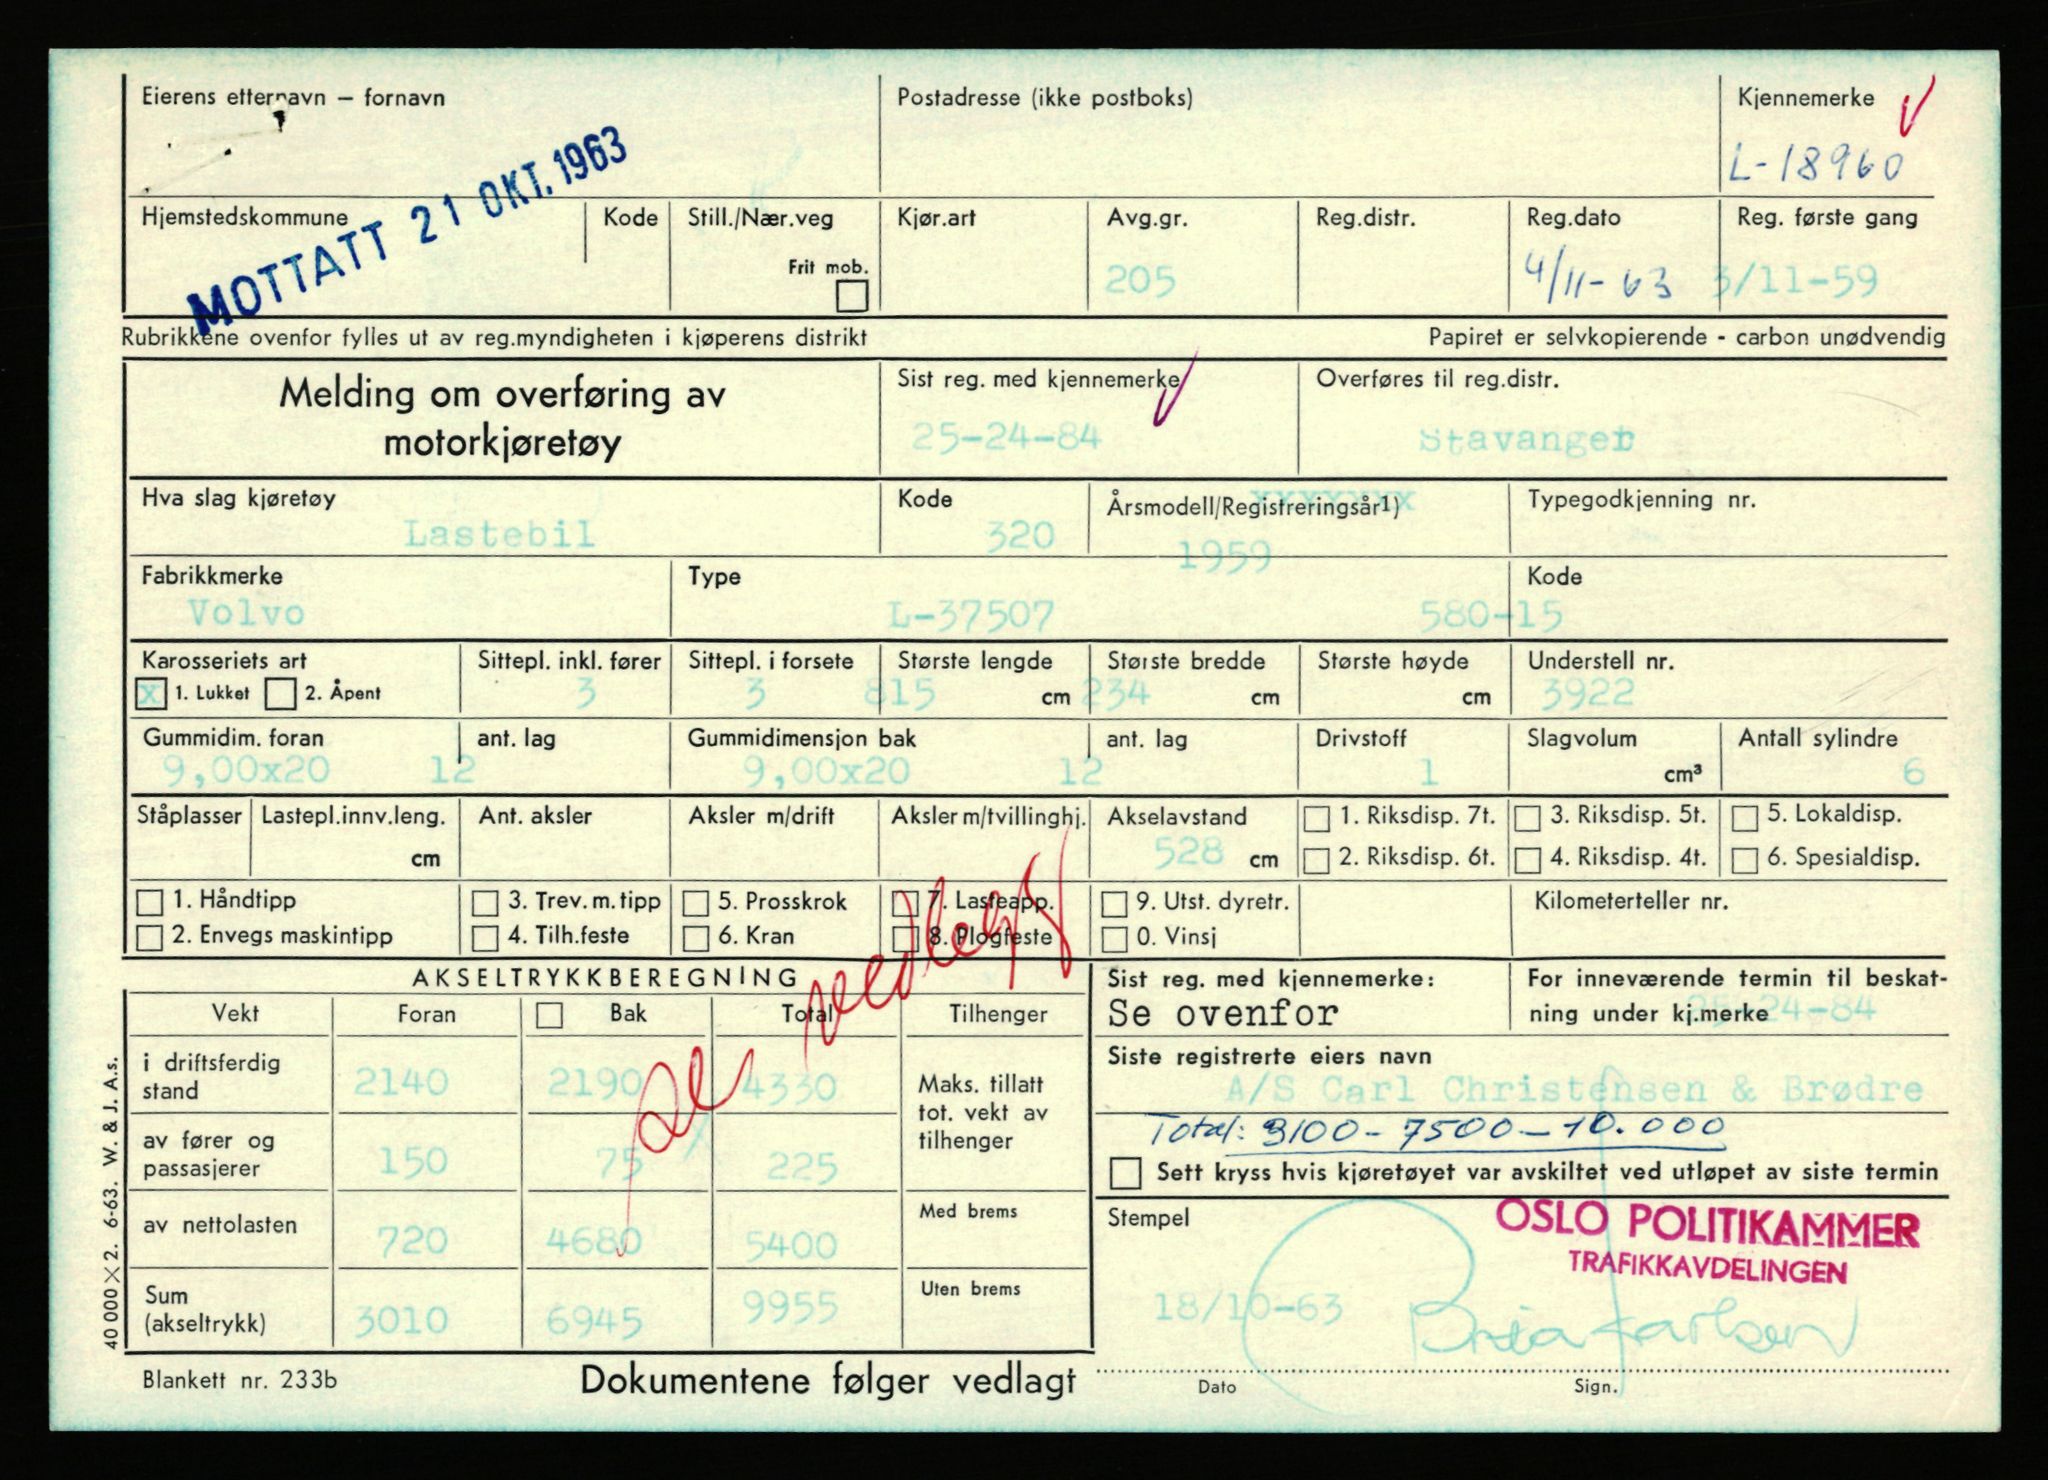 Eierens etternavn – fornavn
Postadresse (ikke postboks)
Kjennemerke
L-18960
MOTTATT 21 OKT. 1963
Hjemstedskommune
Kode
Still./Nær.veg
Frit mob.
Kjør.art
Avg.gr.
205
Reg.distr.
Reg.dato
4/11-63
Reg. første gang
3/11-59
Rubrikkene ovenfor fylles ut av reg.myndigheten i kjøperens distrikt
Papiret er selvkopierende - carbon unødvendig
Melding om overføring av
motorkjøretøy
Sist reg. med kjennemerke
25-24-84
Overføres til reg.distr.
Stavanger
Hva slag kjøretøy
Lastebil
Kode
320
Årsmodell/Registreringsår1)
xxxxxxx
1959
Typegodkjenning nr.
Fabrikkmerke
Volvo
Type
L-37507
Kode
580-15
Karosseriets art
x 1. Lukket 2. Åpent
Sittepl. inkl. fører
3
Sittepl. i forsete
3
Største lengde
815 cm
Største bredde
234 cm
Største høyde
cm
Understell nr.
3922
Gummidim. foran
9,00x20
ant. lag
12
Gummidimensjon bak
9,00x20
ant. lag
12
Drivstoff
1
Slagvolum
cm³
Antall sylindre
6
Ståplasser
Lastepl.innv.leng.
cm
Ant. aksler
Aksler m/drift
Aksler m/tvillinghj.
Akselavstand
528 cm
1. Riksdisp. 7t.
2. Riksdisp. 6t.
3. Riksdisp. 5t.
4. Riksdisp. 4t.
5. Lokaldisp.
6. Spesialdisp.
1. Håndtipp
2. Envegs maskintipp
3. Trev. m. tipp
4. Tilh.feste
5. Prosskrok
6. Kran
7. Lasteapp.
8. Plogfeste
9. Utst. dyretr.
0. Vinsj
Kilometerteller nr.
AKSELTRYKKBEREGNING
Vekt Foran Bak Total Tilhenger
i driftsferdig
stand
2140 2190 4330
av fører og
passasjerer
150 75 225
av nettolasten
720 4680 5400
Sum
(akseltrykk)
3010 6945 9955
Maks. tillatt
tot. vekt av
tilhenger
Med brems
Uten brems
se vedlegg
Sist reg. med kjennemerke:
Se ovenfor
For inneværende termin til beskat-
ning under kj.merke
25-24-84
Siste registrerte eiers navn
A/S Carl Christensen & Brødre
Total: 3100-7500-10.000
Sett kryss hvis kjøretøyet var avskiltet ved utløpet av siste termin
Stempel
OSLO POLITIKAMMER
TRAFIKKAVDELINGEN
18/10-63
Dato
Sign.
Blankett nr. 233b
Dokumentene følger vedlagt
40 000 × 2. 6-63. W. & J. A.s.